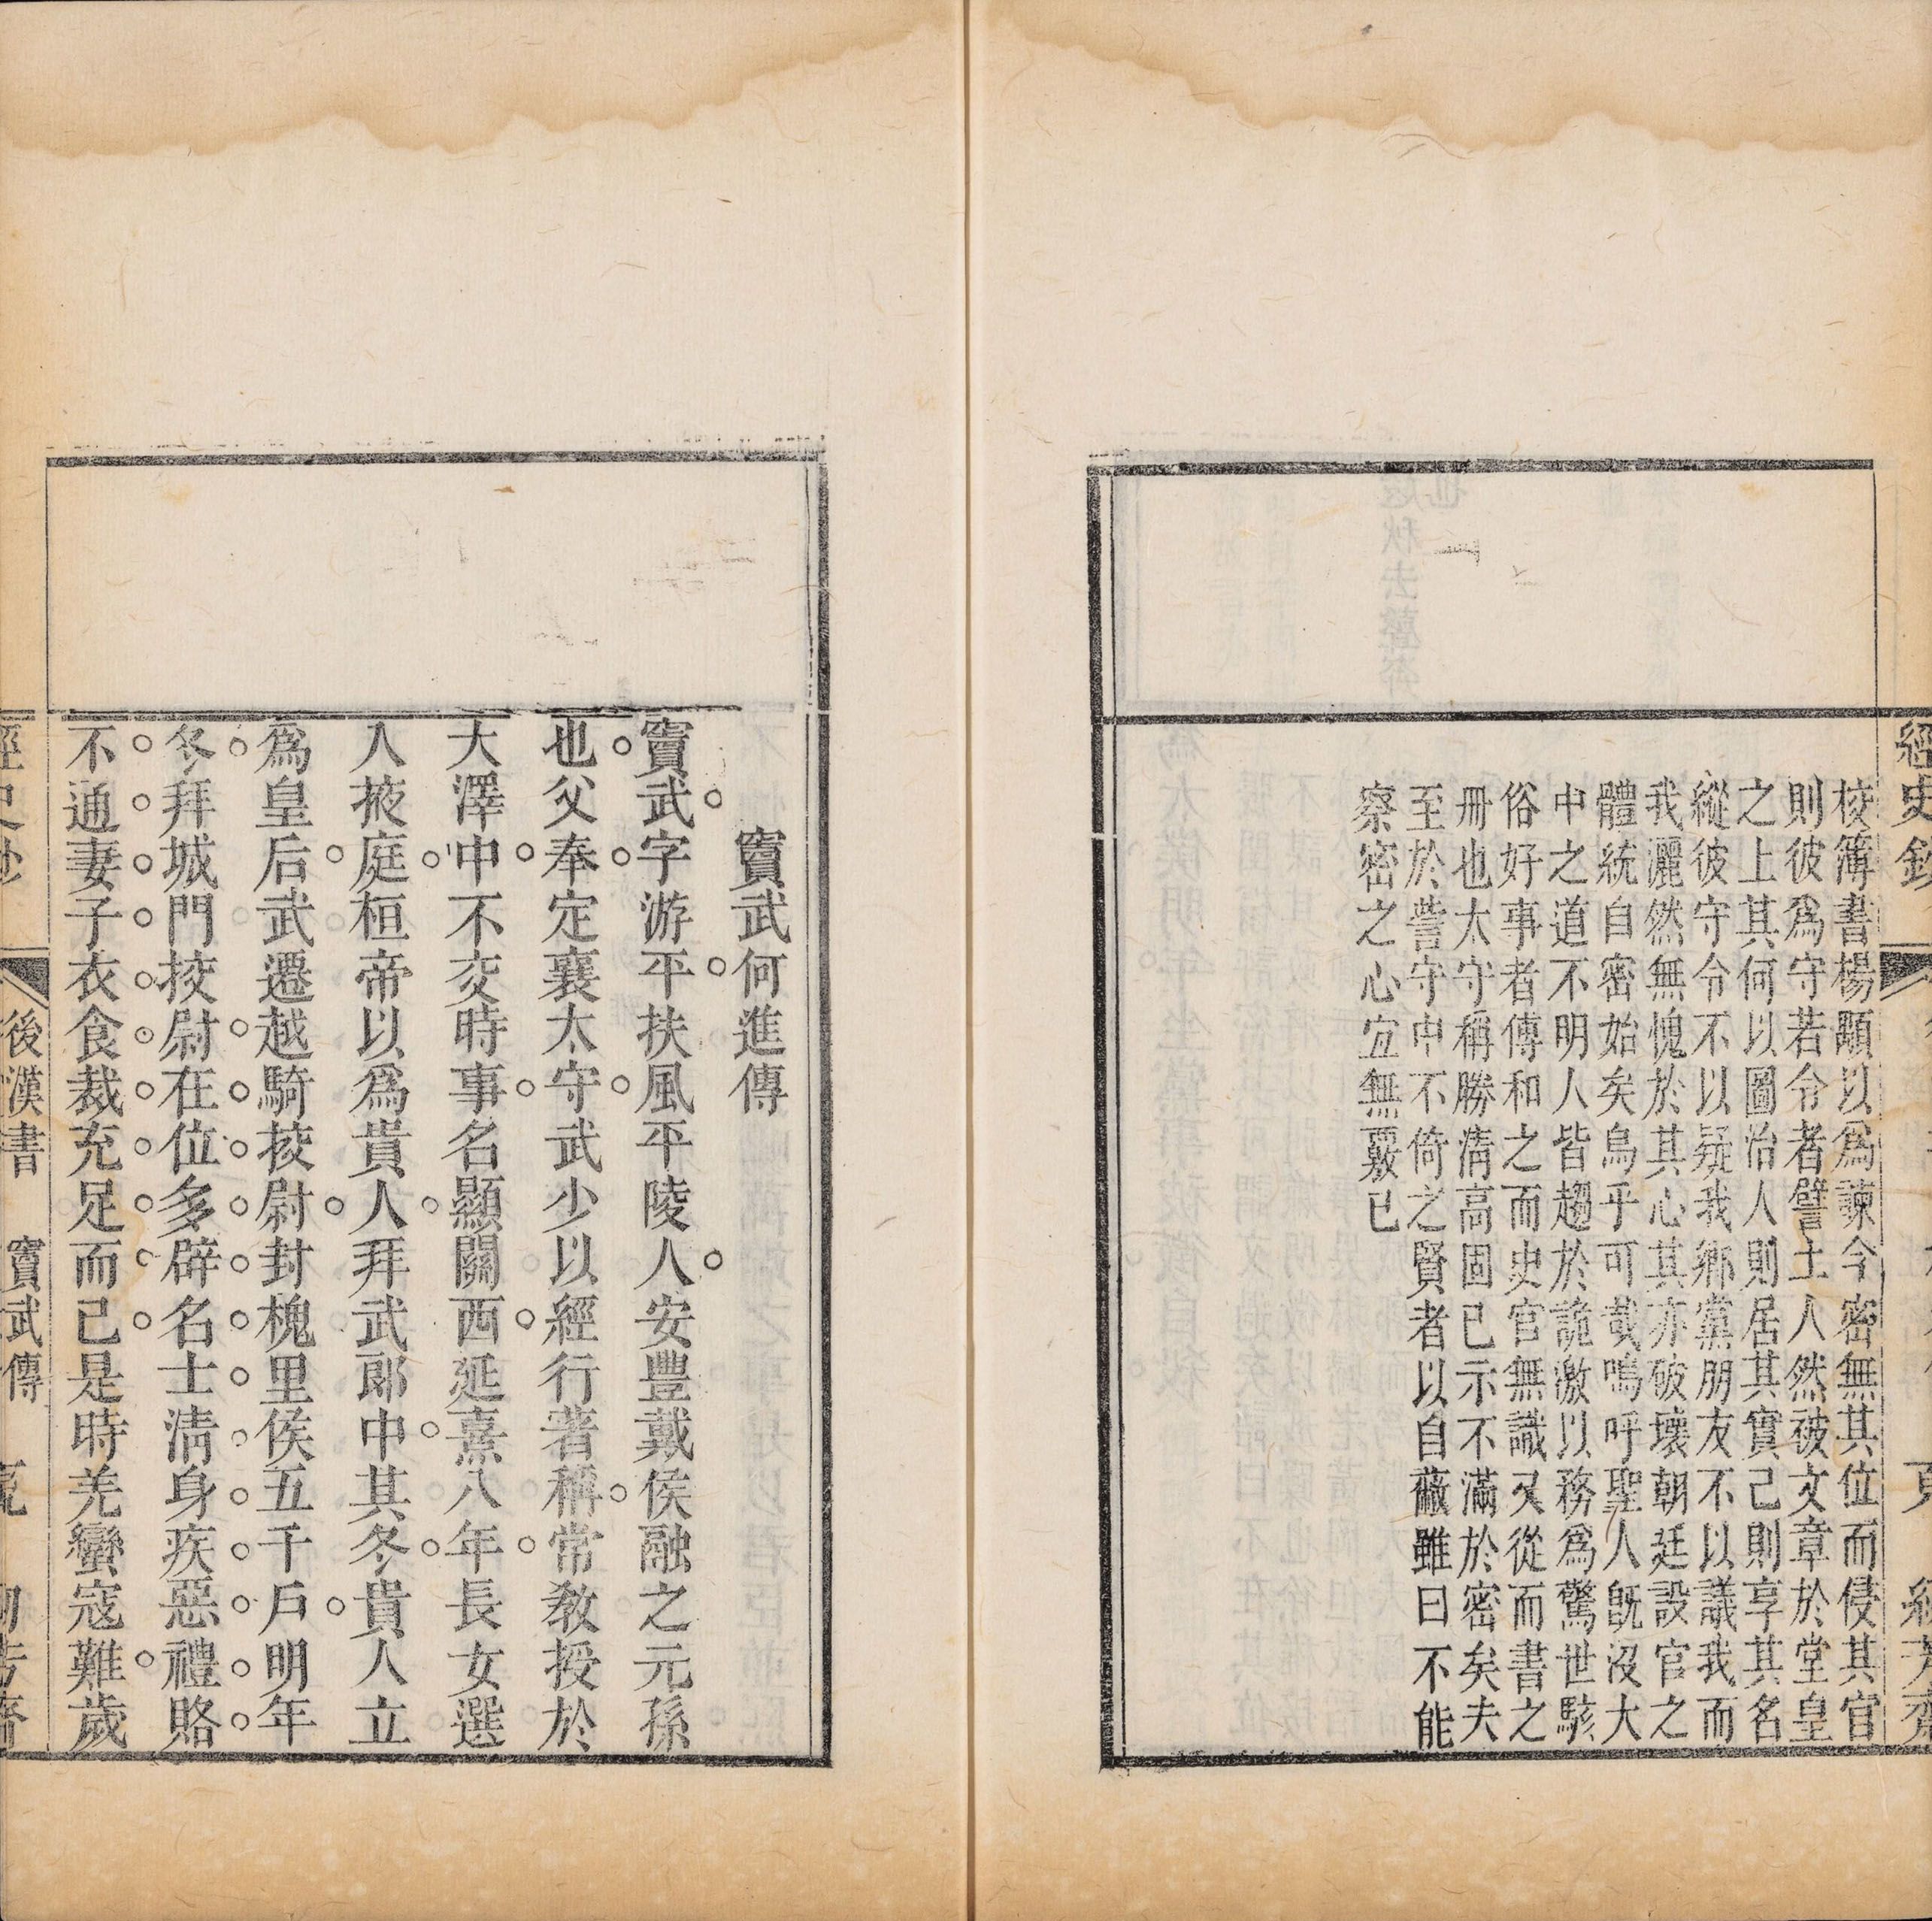 經史鈔
校簿書楊顒以爲諫今密無其位而侵其官
則彼爲守若令者譬土人然被文章於堂皇
之上其何以圖治人則居其實己則享其名
縱彼守令不以疑我鄉黨朋友不以議我而
我灑然無愧於其心其亦破壞朝廷設官之
體統自密始矣烏乎可哉嗚呼聖人旣沒大
中之道不明人皆趨於詭激以務爲驚世駭
俗好事者傳和之而史官無識又從而書之
冊也太守稱勝淸高固已示不滿於密矣夫
至於訾守中不倚之賢者以自蔽雖曰不能
察密之心宜無覈已
竇武何進傳
竇武字游平扶風平陵人安豐戴侯融之元孫
也父奉定襄太守武少以經行著稱常教授於
大澤中不交時事名顯關西延熹八年長女選
入掖庭桓帝以爲貴人拜武郞中其冬貴人立
爲皇后武遷越騎挍尉封槐里侯五千戶明年
冬拜城門挍尉在位多辟名士淸身疾惡禮賂
不通妻子衣食裁充足而已是時羌蠻寇難歲
後漢書 竇武傳